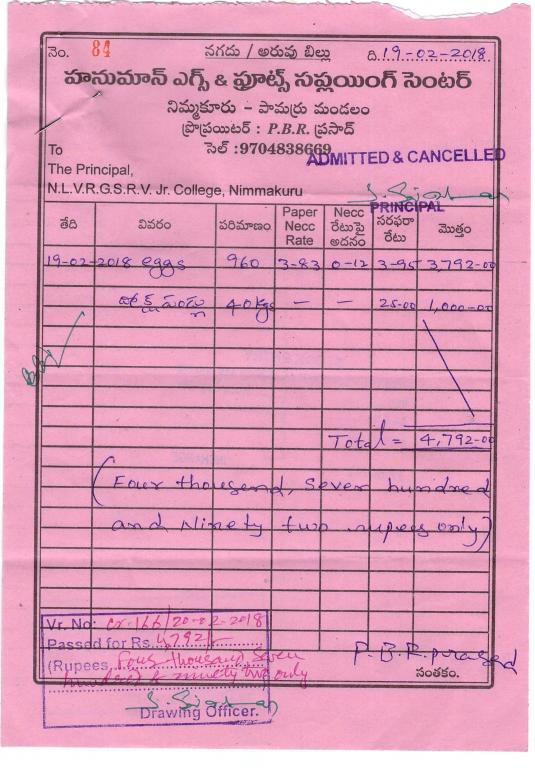 నెం. 84 నగదు / అరువు బిల్లు ది.19-02-2018
హనుమాన్ ఎగ్స్ & ఫ్రూట్స్ సప్లయింగ్ సెంటర్
నిమ్మకూరు - పామర్రు మండలం
ప్రొప్రయిటర్ : P.B.R. ప్రసాద్
సెల్ :9704838669
ADMITTED & CANCELLED
To
The Principal,
N.L.V.R.G.S.R.V. Jr. College, Nimmakuru
PRINCIPAL
తేది వివరం పరిమాణం Paper Necc Rate Necc రేటుపై అదనం సరఫరా రేటు మొత్తం
19-02-2018 eggs 960 3-83 0-12 3-95 3,792-00
40 kgs - - 25-00 1,000-00
Total = 4,792-00
(Four thousand, Seven hundred
and Ninety two rupees only)
Vr. No: cr-166/20-02-2018
Passed for Rs. 4792/-
(Rupees Four thousand Seven
hundred & ninety two only
Drawing Officer.
P.B.R.prasad
సంతకం.